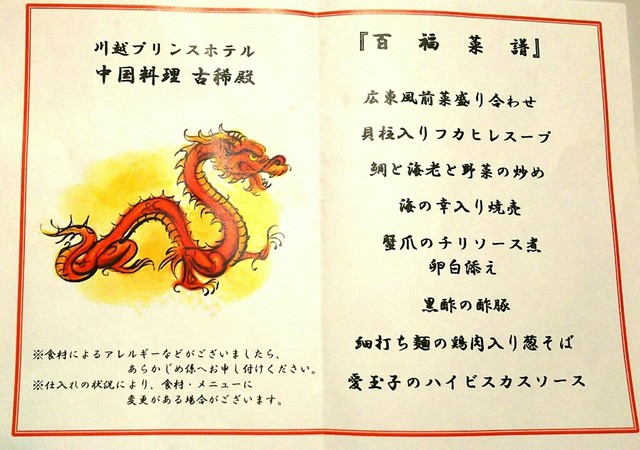 川越プリンスホテル
中国料理 古稀殿
※食材によるアレルギーなどがございましたら、
あらかじめ係へお申し付けください。
※仕入れの状況により、食材・メニューに
変更がある場合がございます。
『百福菜譜』
広東風前菜盛り合わせ
貝柱入りフカヒレスープ
鯛と海老と野菜の炒め
海の幸入り焼売
蟹爪のチリソース煮
卵白添え
黒酢の酢豚
細打ち麺の鶏肉入り葱そば
愛玉子のハイビスカスソース